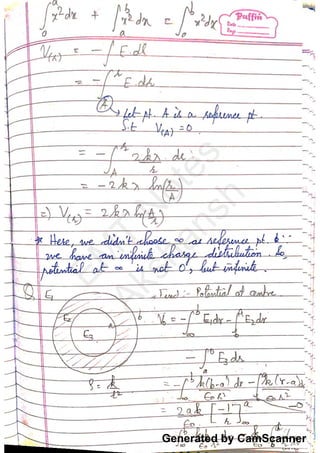 ∫₀ᵃ x²dx + ∫ₐᵇ x²dx = ∫₀ᵇ x²dx
Puffin
Date
Page
V(r) = -∫ E.dl
= -∫ʳ E dr
(A) → Let pt. A is a reference pt.
S.t V(A) = 0
= -∫_A^r 2kλ/r dr
= -2kλ ln(r/A)
=) V(r) = 2kλ ln(A/r)
* Here, we didn't choose ∞ as reference pt. b ∵
we have an infinite charge distribution. So,
potential at ∞ is not 0, but infinite.
Q E₁ Find :- Potential at centre
E₂ a b V₀ = -∫_∞^b E₁dr - ∫_b^a E₂dr
E₃
-∫_a^0 E₃dr
ρ = k/r² = -∫_∞^b k(b-a)/ε₀r² dr - ∫ k(r-a)
Generated by CamScanner